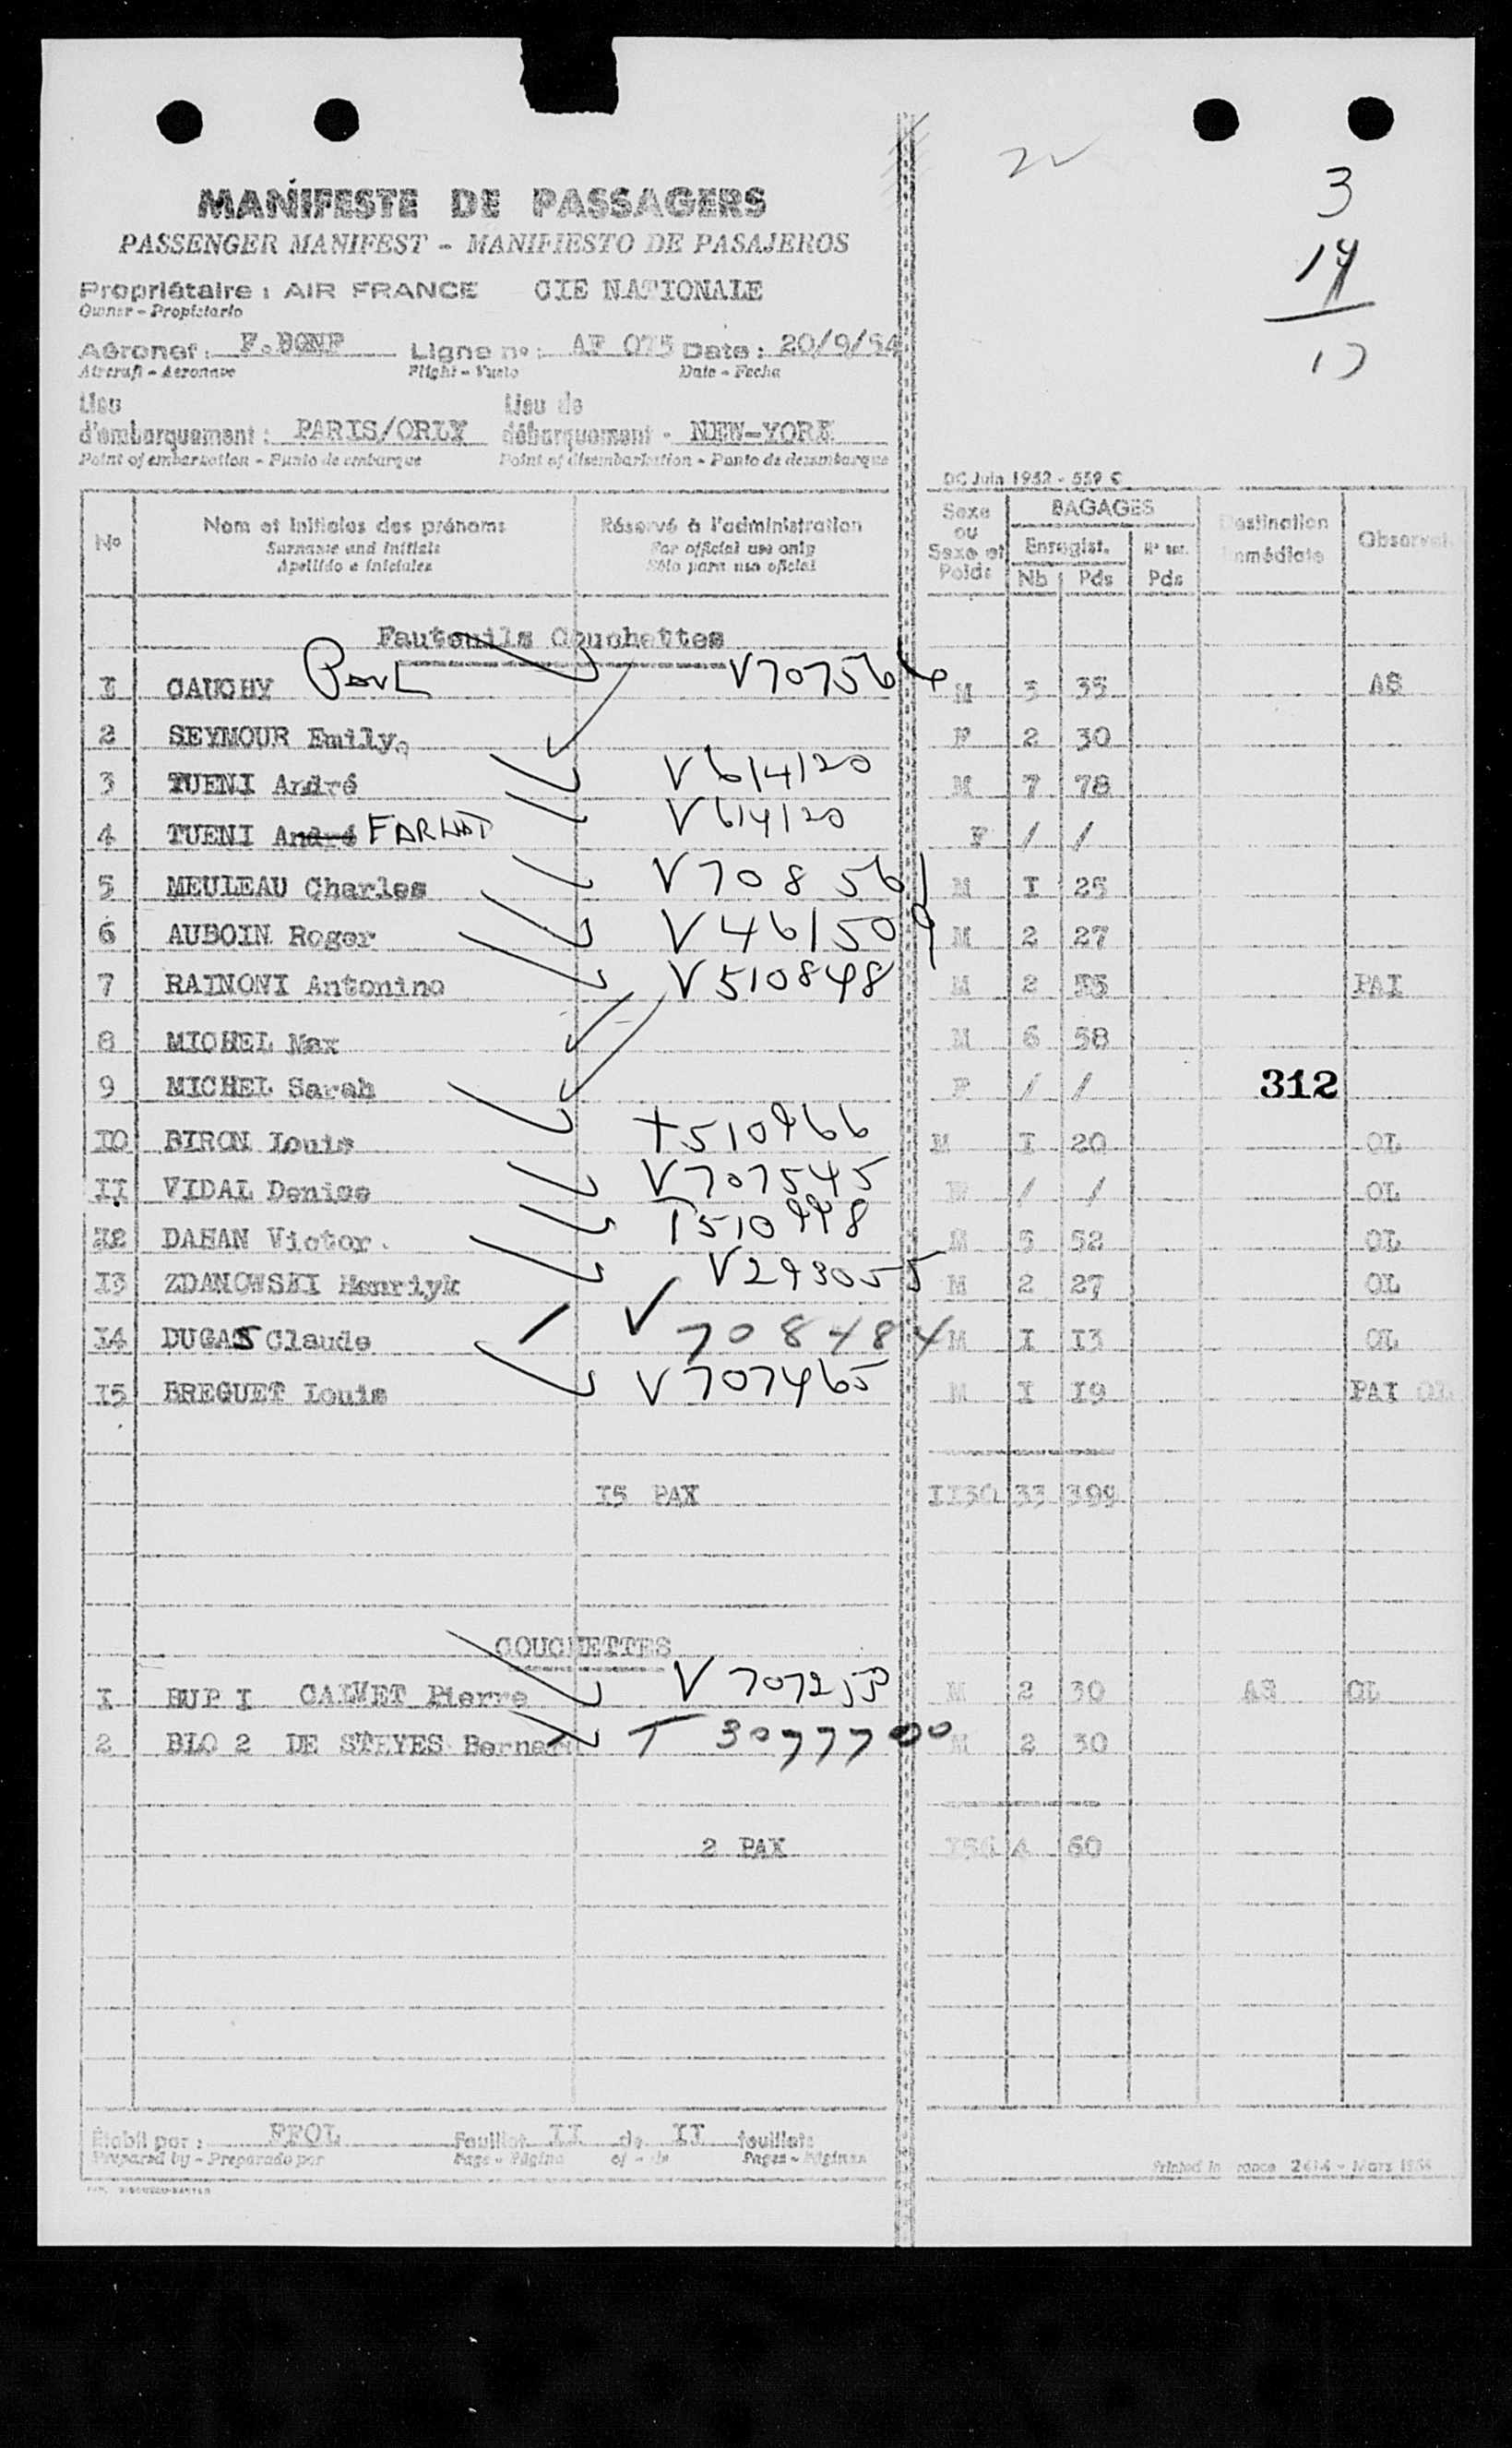 3
14
17
MANIFESTE DE PASSAGERS
PASSENGER MANIFEST - MANIFIESTO DE PASAJEROS
Propriétaire : AIR FRANCE CIE NATIONALE
Owner - Propietario
Aéronef : Ligne n° : AF 075 Date : 20/9/54
Aircraft - Aeronave Flight - Vuelo Date - Fecha
Lieu Lieu de
d'embarquement : PARIS/ORLY débarquement - NEW-YORK
Point of embarkation - Punto de embarque Point of disembarkation - Punto de desembarque
DC Juin 1952 - 559 C
N° Nom et initiales des prénoms Réservé à l'administration Sexe ou Sexe et Poids BAGAGES Destination immédiate Observat.
Surname and initials For official use only Enregist.
Apellido e iniciales Sólo para uso oficial Nb Pds Pds
Fauteuils Couchettes
I CAUCHY PAUL V707566 M 3 35 AS
2 SEYMOUR Emily. F 2 30
3 TUENI André M 7 78 V614120
4 TUENI André FARHAT V614120 F / /
5 MEULEAU Charles V708561 M I 25
6 AUBOIN Roger V461509 M 2 27
7 RAINONI Antonino V510848 M 2 PAI
8 MICHEL Max M 6 58
9 MICHEL Sarah F / / 312
IO BIRON Louis M I 20 OL
II VIDAL Denise V707545 / / OL
I2 DAHAN Victor. M 5 52 OL
I3 ZDANOWSKI Henriyk V293055 M 2 27 OL
I4 DUGAS Claude V 708484 M I I3 OL
I5 BREGUET Louis V707465 M I I9 PAI OL
I5 PAX II30 33 399
COUCHETTES
I BUP I CALVET Pierre M 2 30 AS OL
2 BLO 2 DE STEYES Bernard T 3077700 M 2 30
2 PAX I56 4 60
Établi par : FFOL Feuillet II de II feuillets
Prepared by - Preparado por Page - Página of - de Pages - Páginas
Printed in France 2414 - Mars